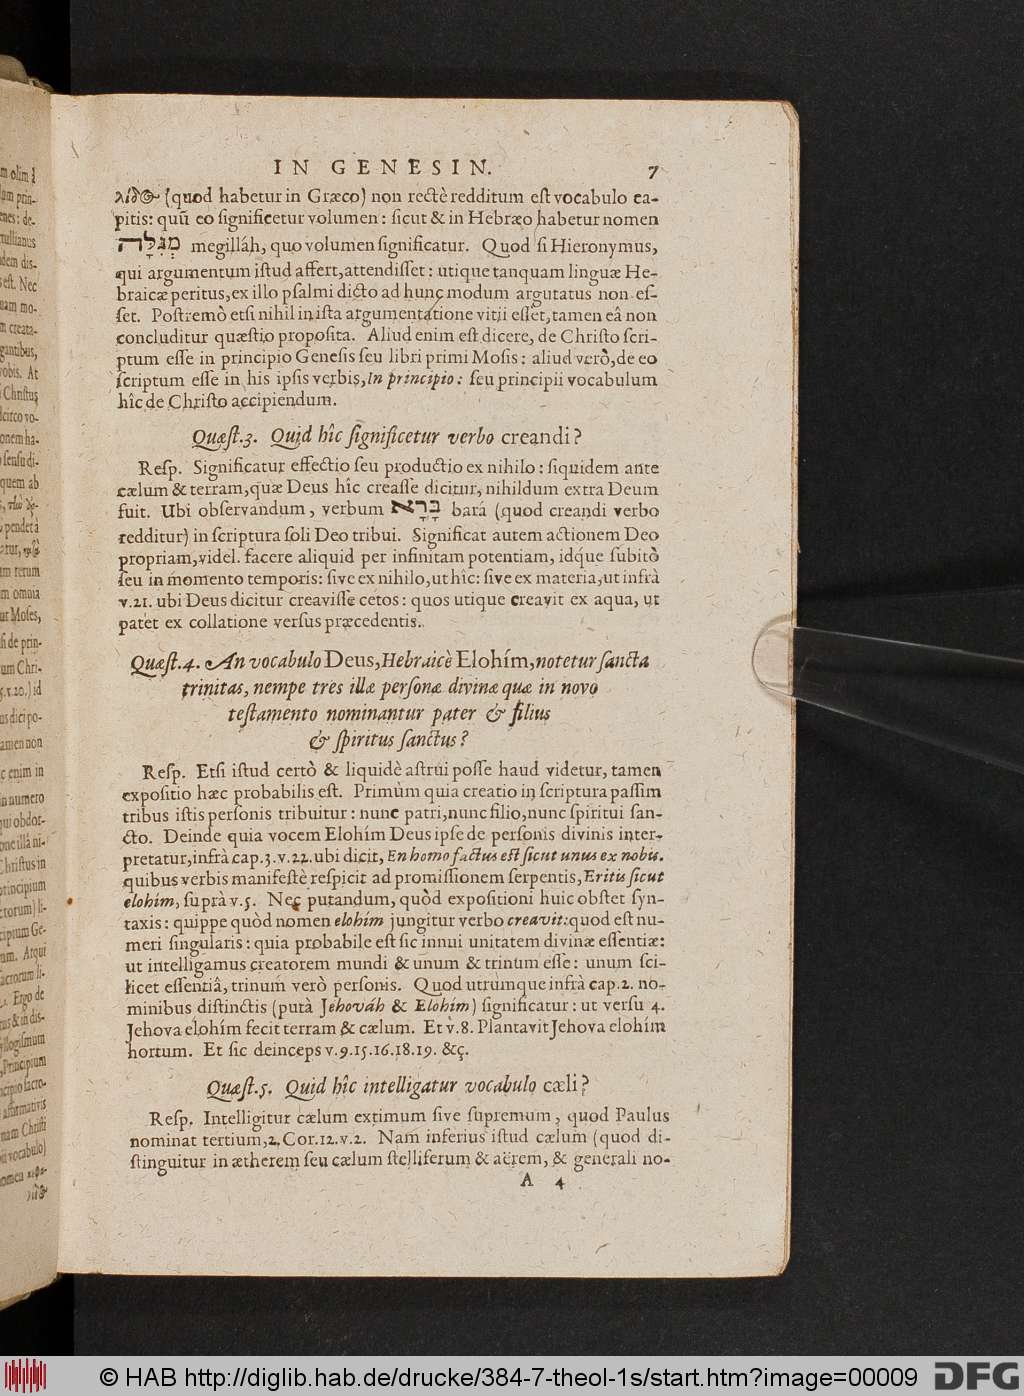 IN GENESIN. 7
λίδος (quod habetur in Græco) non rectè redditum est vocabulo ca-
pitis: quū eo significetur volumen: sicut & in Hebræo habetur nomen
מְגִלָּה megilláh, quo volumen significatur. Quod si Hieronymus,
qui argumentum istud affert, attendisset: utique tanquam linguæ He-
braicæ peritus, ex illo psalmi dicto ad hunc modum argutatus non es-
set. Postremò etsi nihil in ista argumentatione vitii esset, tamen eâ non
concluditur quæstio proposita. Aliud enim est dicere, de Christo scri-
ptum esse in principio Genesis seu libri primi Mosis: aliud verò, de eo
scriptum esse in his ipsis verbis, In principio: seu principii vocabulum
hîc de Christo accipiendum.
Quæst.3. Quid hîc significetur verbo creandi?
Resp. Significatur effectio seu productio ex nihilo: siquidem ante
cælum & terram, quæ Deus hîc creasse dicitur, nihildum extra Deum
fuit. Ubi observandum, verbum בָּרָא bará (quod creandi verbo
redditur) in scriptura soli Deo tribui. Significat autem actionem Deo
propriam, videl. facere aliquid per infinitam potentiam, idq́ue subitò
seu in momento temporis: sive ex nihilo, ut hîc: sive ex materia, ut infrà
v.21. ubi Deus dicitur creavisse cetos: quos utique creavit ex aqua, ut
patet ex collatione versus præcedentis.
Quæst.4. An vocabulo Deus, Hebraicè Elohím, notetur sancta
trinitas, nempe tres illæ personæ divinæ quæ in novo
testamento nominantur pater & filius
& spiritus sanctus?
Resp. Etsi istud certò & liquidè astrui posse haud videtur, tamen
expositio hæc probabilis est. Primùm quia creatio in scriptura passim
tribus istis personis tribuitur: nunc patri, nunc filio, nunc spiritui san-
cto. Deinde quia vocem Elohím Deus ipse de personis divinis inter-
pretatur, infrà cap.3.v.22. ubi dicit, En homo factus est sicut unus ex nobis.
quibus verbis manifestè respicit ad promissionem serpentis, Eritis sicut
elohím, suprà v.5. Nec putandum, quòd expositioni huic obstet syn-
taxis: quippe quòd nomen elohím jungitur verbo creavit: quod est nu-
meri singularis: quia probabile est sic innui unitatem divinæ essentiæ:
ut intelligamus creatorem mundi & unum & trinum esse: unum sci-
licet essentiâ, trinum verò personis. Quod utrumque infrà cap.2. no-
minibus distinctis (putà Jehováh & Elohím) significatur: ut versu 4.
Jehova elohím fecit terram & cælum. Et v.8. Plantavit Jehova elohím
hortum. Et sic deinceps v.9.15.16.18.19. &ç.
Quæst.5. Quid hîc intelligatur vocabulo cæli?
Resp. Intelligitur cælum extimum sive supremum, quod Paulus
nominat tertium, 2. Cor.12.v.2. Nam inferius istud cælum (quod di-
stinguitur in ætherem seu cælum stelliferum & aërem, & generali no-
A 4
© HAB http://diglib.hab.de/drucke/384-7-theol-1s/start.htm?image=00009
DFG